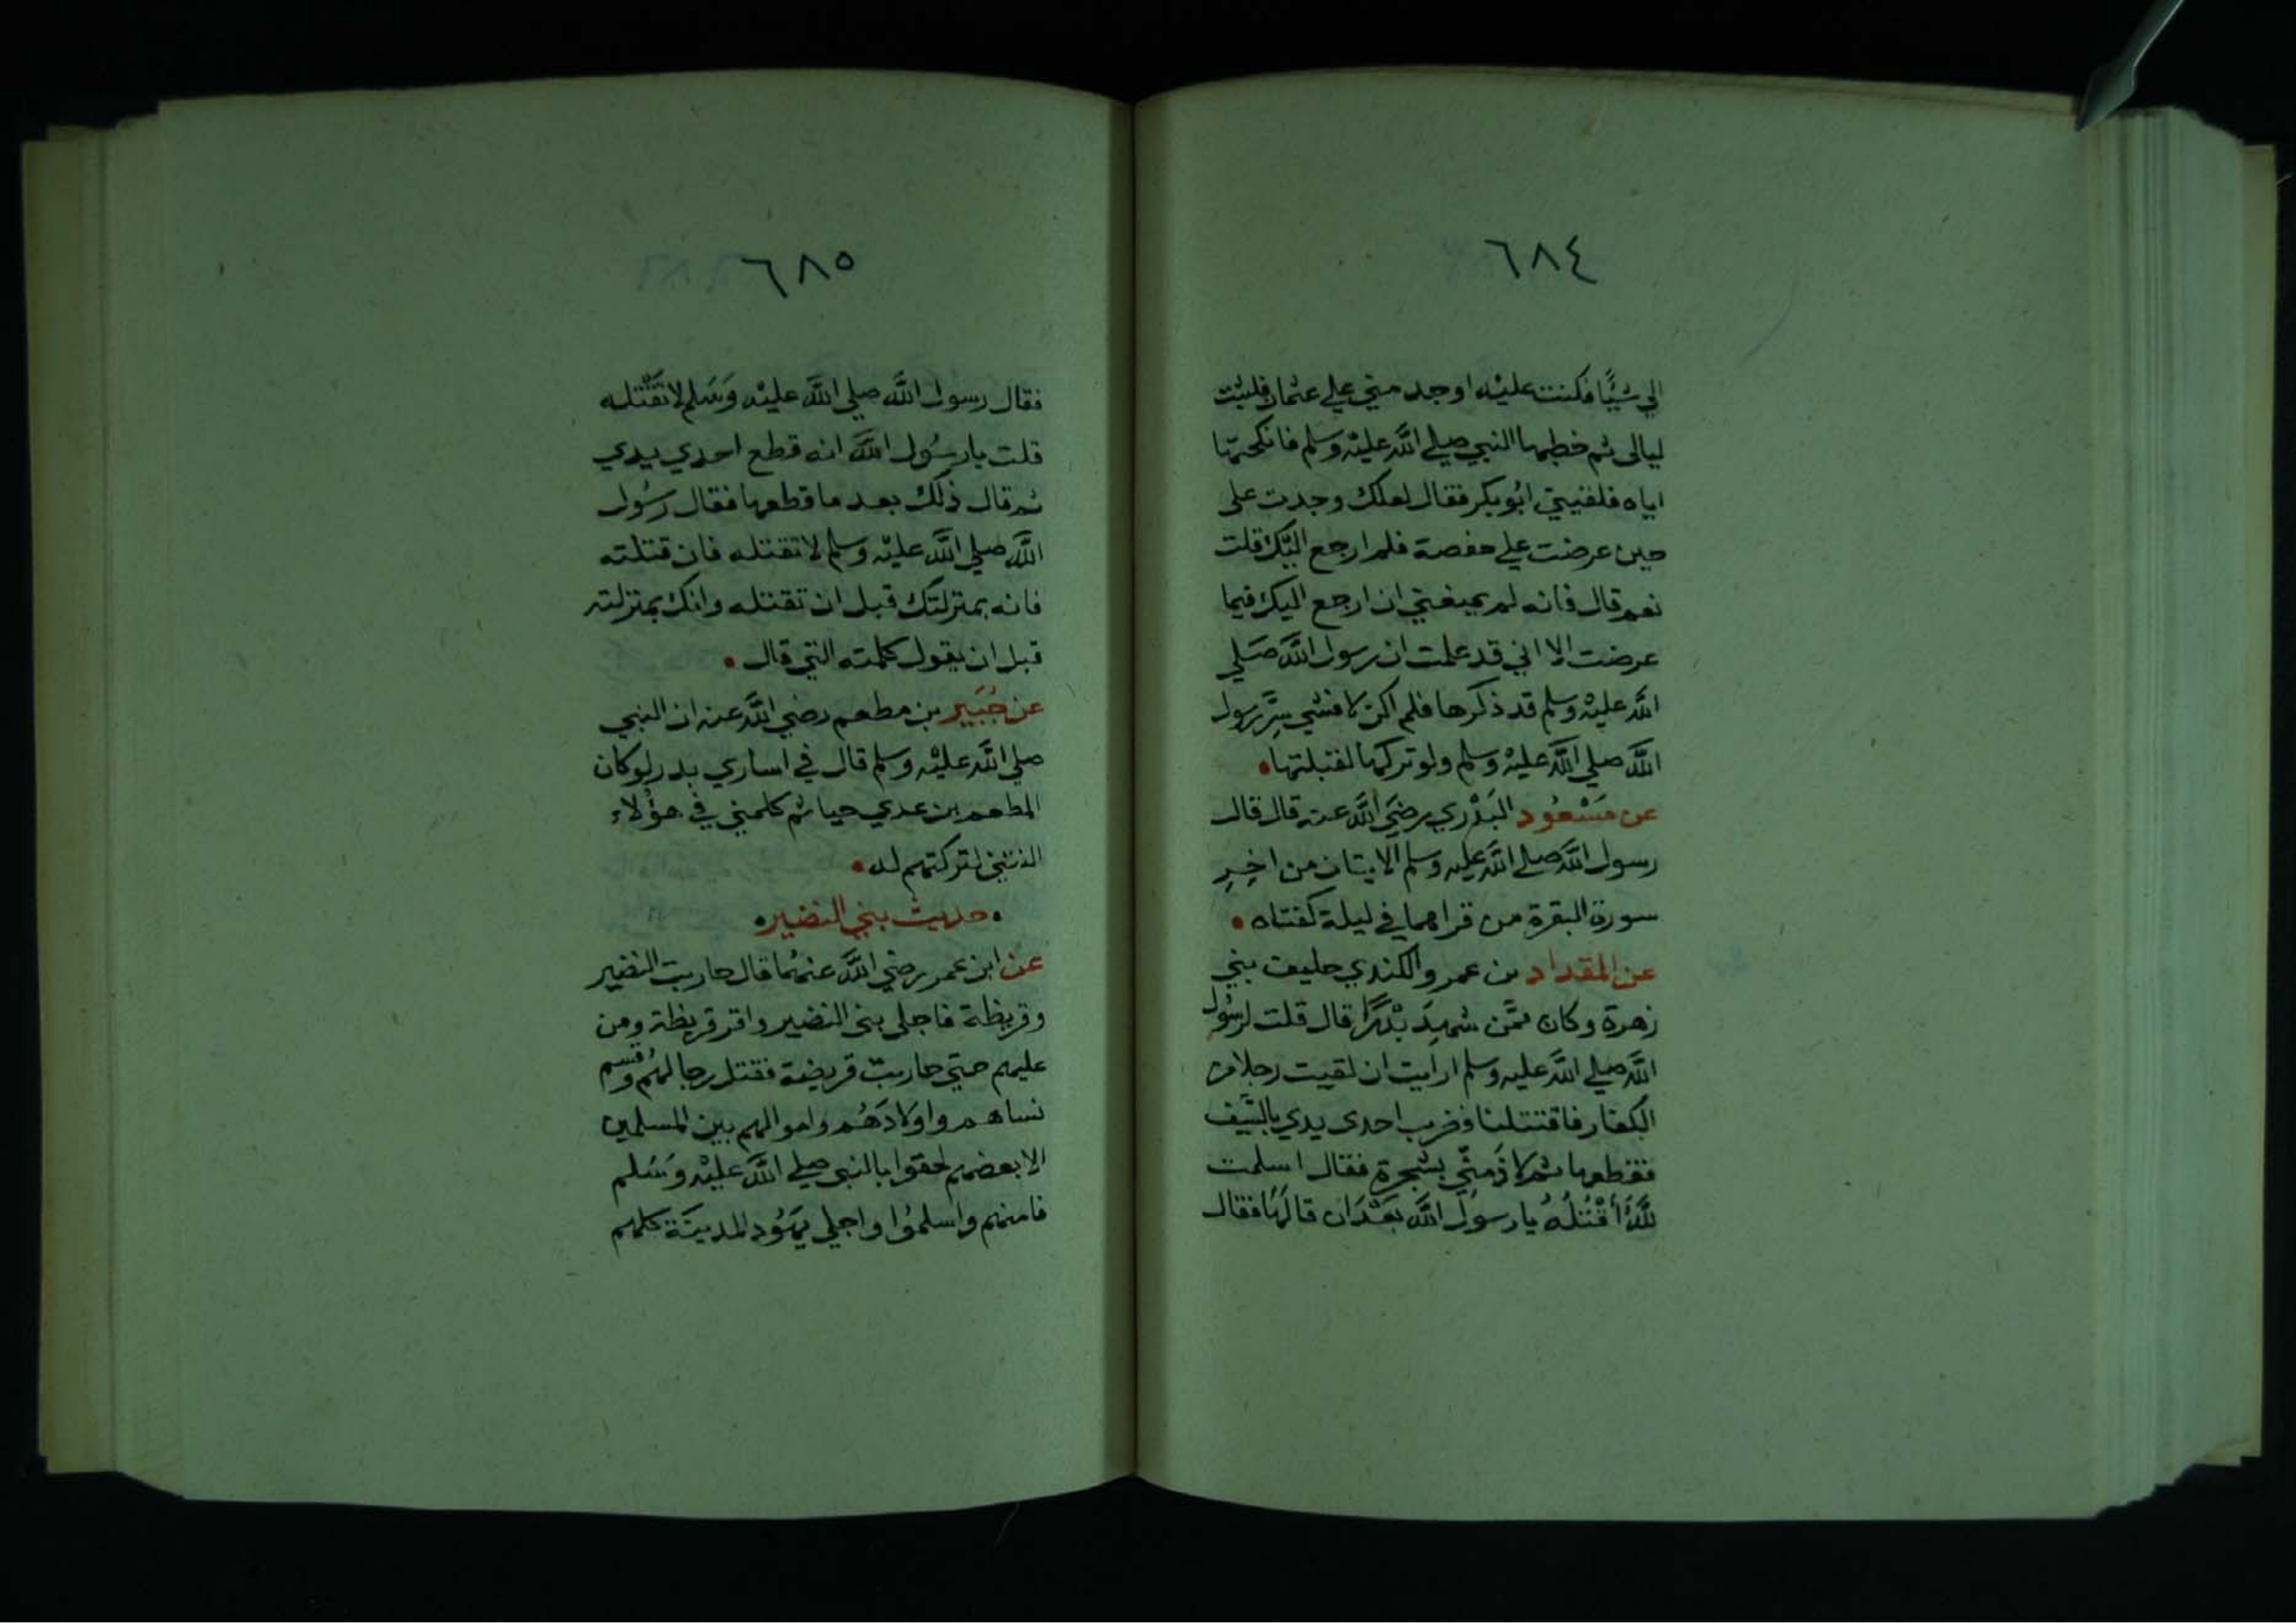 ٦٨٤
الي شيًّا فكنت عليه اوجد مني علي عثمان فلبثت
ليالى ثم خطبها النبي صلي الله عليه وسلم فانكحتها
اياه فلقيني ابُو بكر فقال لعلك وجدت على
حين عرضت علي حفصة فلم ارجع اليك قلت
نعم قال فانه لم يمنعني ان ارجع اليك فيما
عرضت الا اني قد علمت ان رسول الله صَلي
الله عليه وسلم قد ذكرها فلم اكن لافشي سِرَّ رسول
الله صلي الله عليه وسلم ولو تركها لقبلتها
عن مَسْعُود البَدْري رضيَ الله عنه قال قال
رسول الله صلي الله عليه وسلم الايتان من اخِرِ
سورة البقرة من قراهما في ليلة كفتاه
عن المقداد بن عمرو الكندي حليف بني
زهرة وكان ممَّن شهِدَ بَدْرًا قال قلت لرسُول
الله صلي الله عليه وسلم ارايت ان لقيت رجلا من
الكفار فاقتتلنا فضرب احدى يدي بالسَّيف
فقطعها ثم لاذَ منّي بشجرة فقال اسلمت
للهِ أأقْتُلُهُ يا رسول الله بَعْدَ ان قالهَا فقال
٦٨٥
فقال رسول الله صلي الله عليْه وَسَلم لا تقتله
قلت يا رسُول الله انه قطع احدي يدي
ثم قال ذلك بعد ما قطعها فقال رسُول
الله صلي الله عليه وسلم لا تقتله فان قتلته
فانه بمنزلتك قبل ان تقتله وانك بمنزلته
قبل ان يقول كلمته التي قال
عن جُبَير بن مطعم رضي الله عنه ان النبي
صلي الله عليْه وسلم قال في اساري بدر لو كان
المطعم بن عدي حيا ثم كلمني في هؤلاء
النتني لتركتهم له
حديث بني النضير
عن ابن عمر رضي الله عنهُما قال حاربت النضير
وقريظة فاجلي بني النضير واقر قريظة ومن
عليهم حتي حاربت قريضة فقتل رجالهُم وقسم
نساهم واولادَهُم واموالهم بين المسلمين
الا بعضهم لحقوا بالنبي صلي الله عليْه وسَلم
فامنهم واسلمُوا واجلي يهُود المدينَة كلهم